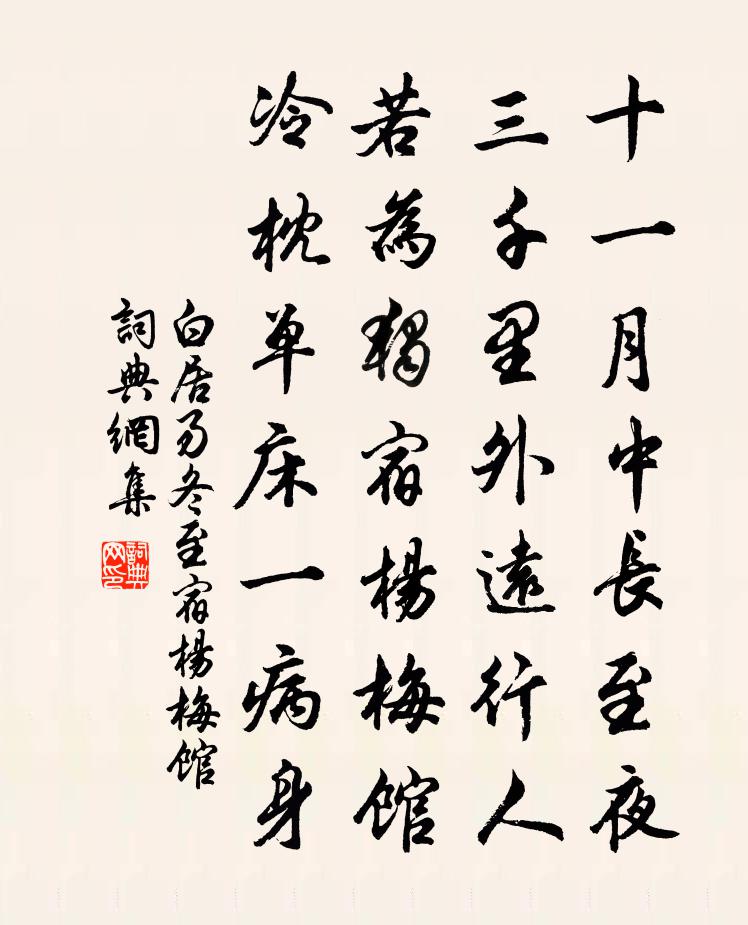 十一月中長至夜
三千里外遠行人
若為獨宿楊梅館
冷枕單床一病身
白居易冬至宿楊梅館
詞典網集
詞典网印